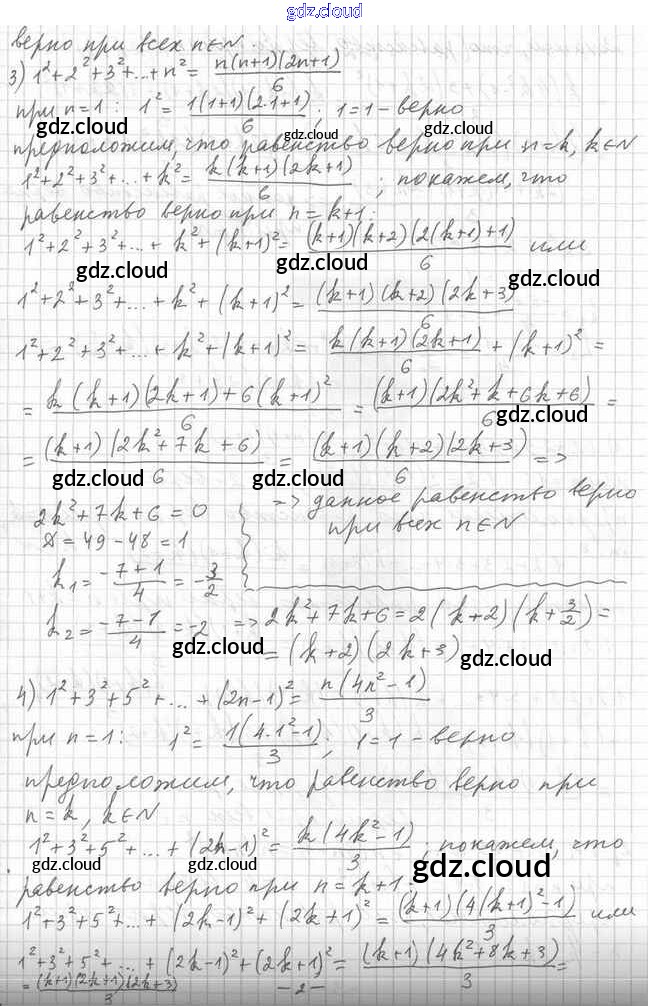 gdz.cloud
верно при всех n∈N
3) 1²+2²+3²+...+n² = n(n+1)(2n+1)/6
при n=1: 1² = 1(1+1)(2·1+1)/6; 1=1 - верно
gdz.cloud gdz.cloud gdz.cloud
предположим, что равенство верно при n=k, k∈N
1²+2²+3²+...+k² = k(k+1)(2k+1)/6; покажем, что
равенство верно при n=k+1:
1²+2²+3²+...+k²+(k+1)² = (k+1)(k+2)(2(k+1)+1)/6 или
gdz.cloud gdz.cloud gdz.cloud
1²+2²+3²+...+k²+(k+1)² = (k+1)(k+2)(2k+3)/6
1²+2²+3²+...+k²+(k+1)² = k(k+1)(2k+1)/6 + (k+1)² =
= k(k+1)(2k+1)+6(k+1)²/6 = (k+1)(2k²+k+6k+6)/6 =
gdz.cloud
= (k+1)(2k²+7k+6)/6 = (k+1)(k+2)(2k+3)/6 =>
gdz.cloud gdz.cloud gdz.cloud
=> данное равенство верно
при всех n∈N
2k²+7k+6=0
D=49-48=1
k₁ = -7+1/4 = -3/2
k₂ = -7-1/4 = -2 => 2k²+7k+6=2(k+2)(k+3/2)=
gdz.cloud
= (k+2)(2k+3)
gdz.cloud
4) 1²+3²+5²+...+(2n-1)² = n(4n²-1)/3
при n=1: 1² = 1(4·1²-1)/3; 1=1 - верно
предположим, что равенство верно при
n=k, k∈N
1²+3²+5²+...+(2k-1)² = k(4k²-1)/3; покажем, что
gdz.cloud gdz.cloud gdz.cloud
равенство верно при n=k+1:
1²+3²+5²+...+(2k-1)²+(2k+1)² = (k+1)(4(k+1)²-1)/3 или
1²+3²+5²+...+(2k-1)²+(2k+1)² = (k+1)(4k²+8k+3)/3 =
= (k+1)(2k+1)(2k+3)/3
gdz.cloud gdz.cloud
-2-